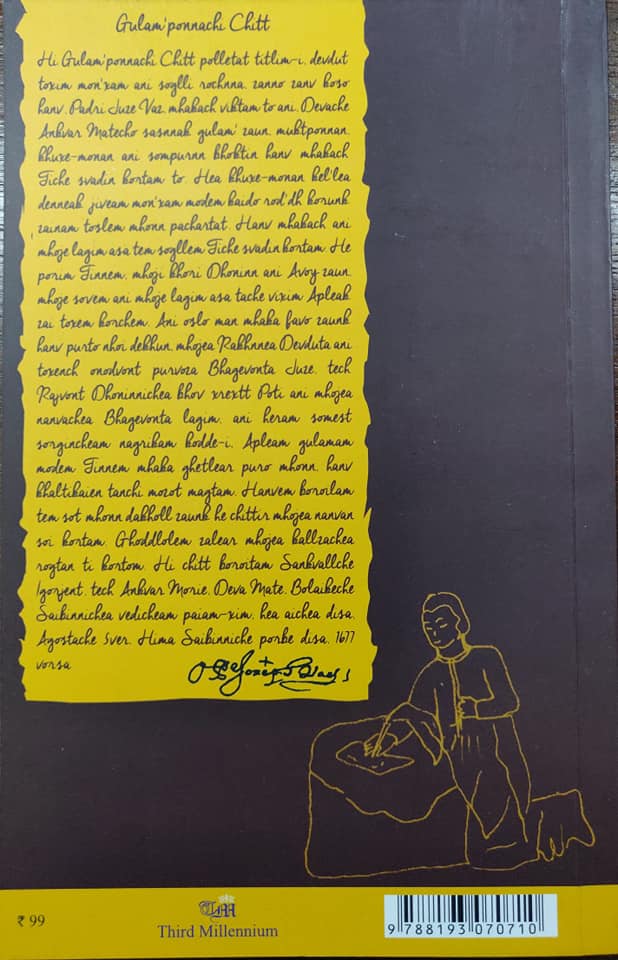 Gulam'ponnachi Chitt
Hi Gulam'ponnachi Chitt polletat titlim-i, devdut
toxim mon'xam ani soglli rochnna, zanno zanv koso
hanv, Padri Juze Vaz, mhabach viktam to ani, Devache
Ankvar Matecho sasnnak gulam' zaun, muktponnan,
khuxe-monan ani sompurnn khoktin hanv mhabach
Tiche svadin kortam to. Hea khuxe-monan kel'lea
denneak jiveam mon'xam modem kaido rod'dh korunk
zainam toslem mhonn pachartat. Hanv mhabach ani
mhoje lagim asa tem sogllem Tiche svadin kortam. He
porim Tinnem, mhoji khori Dhoninn ani Avoy zaun,
mhoje sovem ani mhoje lagim asa tache vixim Apleak
zai toxem korchem. Ani oslo man mhaka favo zaunk
hanv purto nhoi dekhun, mhojea Rakhnnea Devduta ani
toxench onodvont purvoza Bhagevonta Juze, tech
Rajvont Dhoninnichea bhov xrextt Poti ani mhojea
nanvachea Bhagevonta lagim, ani heram somest
sorgincheam nagrikam kodde-i, Apleam gulamam
modem Tinnem mhaka ghetlear puro mhonn, hanv
khaltikaien tanchi mozot magtam. Hanvem boroilam
tem sot mhonn dakholl zaunk he chittir mhojea nanvan
soi kortam. Ghoddlolem zalear mhojea kallzachea
rogtan ti kortom. Hi chitt boroitam Sankvallche
Igorjent, tech Ankvar Morie, Deva Mate, Bolaikeche
Saibinnichea vedicheam paiam-xim, hea aichea disa,
Agostache 5ver, Hima Saibinniche porbe disa, 1677
vorsa
₹ 99
TM
Third Millennium
9 788193 070710